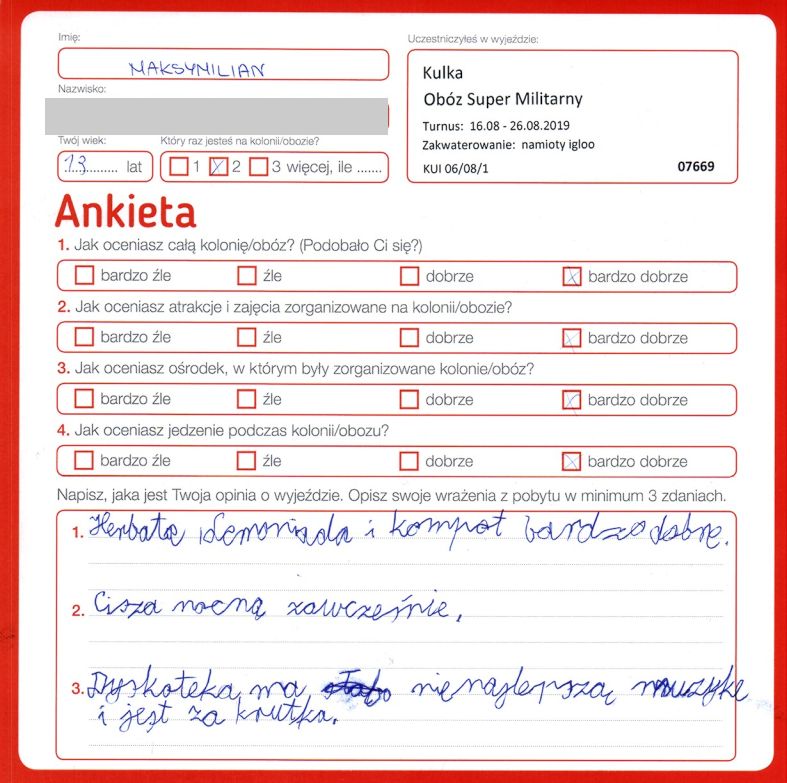 Imię:
MAKSYMILIAN
Uczestniczyłeś w wyjeździe:
Kulka
Obóz Super Militarny
Turnus: 16.08 - 26.08.2019
Zakwaterowanie: namioty igloo
KUI 06/08/1 07669
Nazwisko:
Twój wiek:
13 lat
Który raz jesteś na kolonii/obozie?
1 2 3 więcej, ile .......
Ankieta
1. Jak oceniasz całą kolonię/obóz? (Podobało Ci się?)
bardzo źle źle dobrze bardzo dobrze
2. Jak oceniasz atrakcje i zajęcia zorganizowane na kolonii/obozie?
bardzo źle źle dobrze bardzo dobrze
3. Jak oceniasz ośrodek, w którym były zorganizowane kolonie/obóz?
bardzo źle źle dobrze bardzo dobrze
4. Jak oceniasz jedzenie podczas kolonii/obozu?
bardzo źle źle dobrze bardzo dobrze
Napisz, jaka jest Twoja opinia o wyjeździe. Opisz swoje wrażenia z pobytu w minimum 3 zdaniach.
1. Herbata lemoniada i kompot bardzo dobre.
2. Cisza nocną zawcześnie.
3. Dyskoteka ma nienajlepszą muzykę
i jest za krutka.